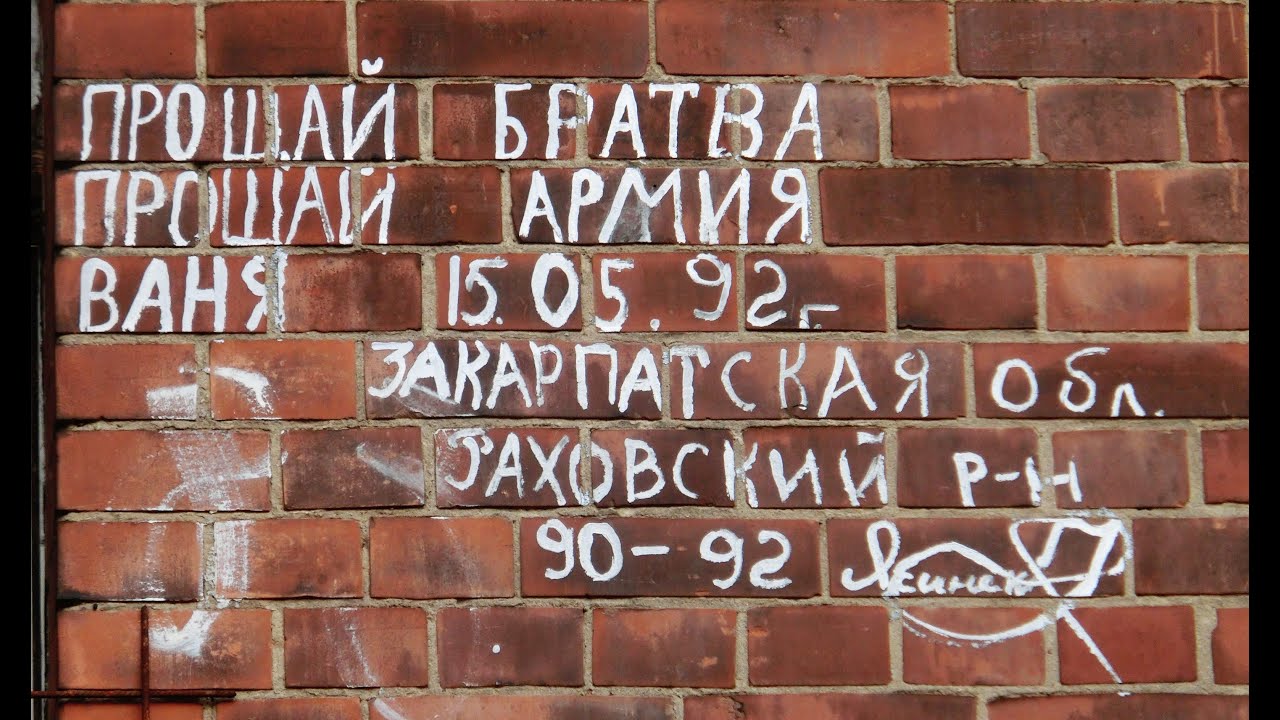 ПРОЩАЙ БРАТВА
ПРОЩАЙ АРМИЯ
ВАНЯ 15.05.92г.
ЗАКАРПАТСКАЯ Обл.
РАХОВСКИЙ Р-Н
90-92